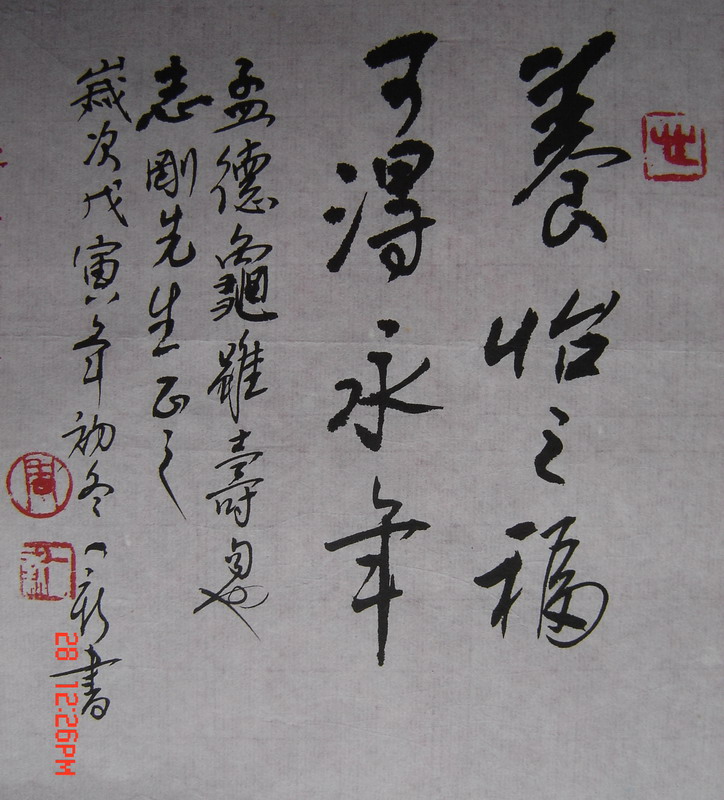 養怡之福
可得永年
孟德龜雖壽句也
志剛先生正之
歲次戊寅年初冬
書
周
28 12:26PM